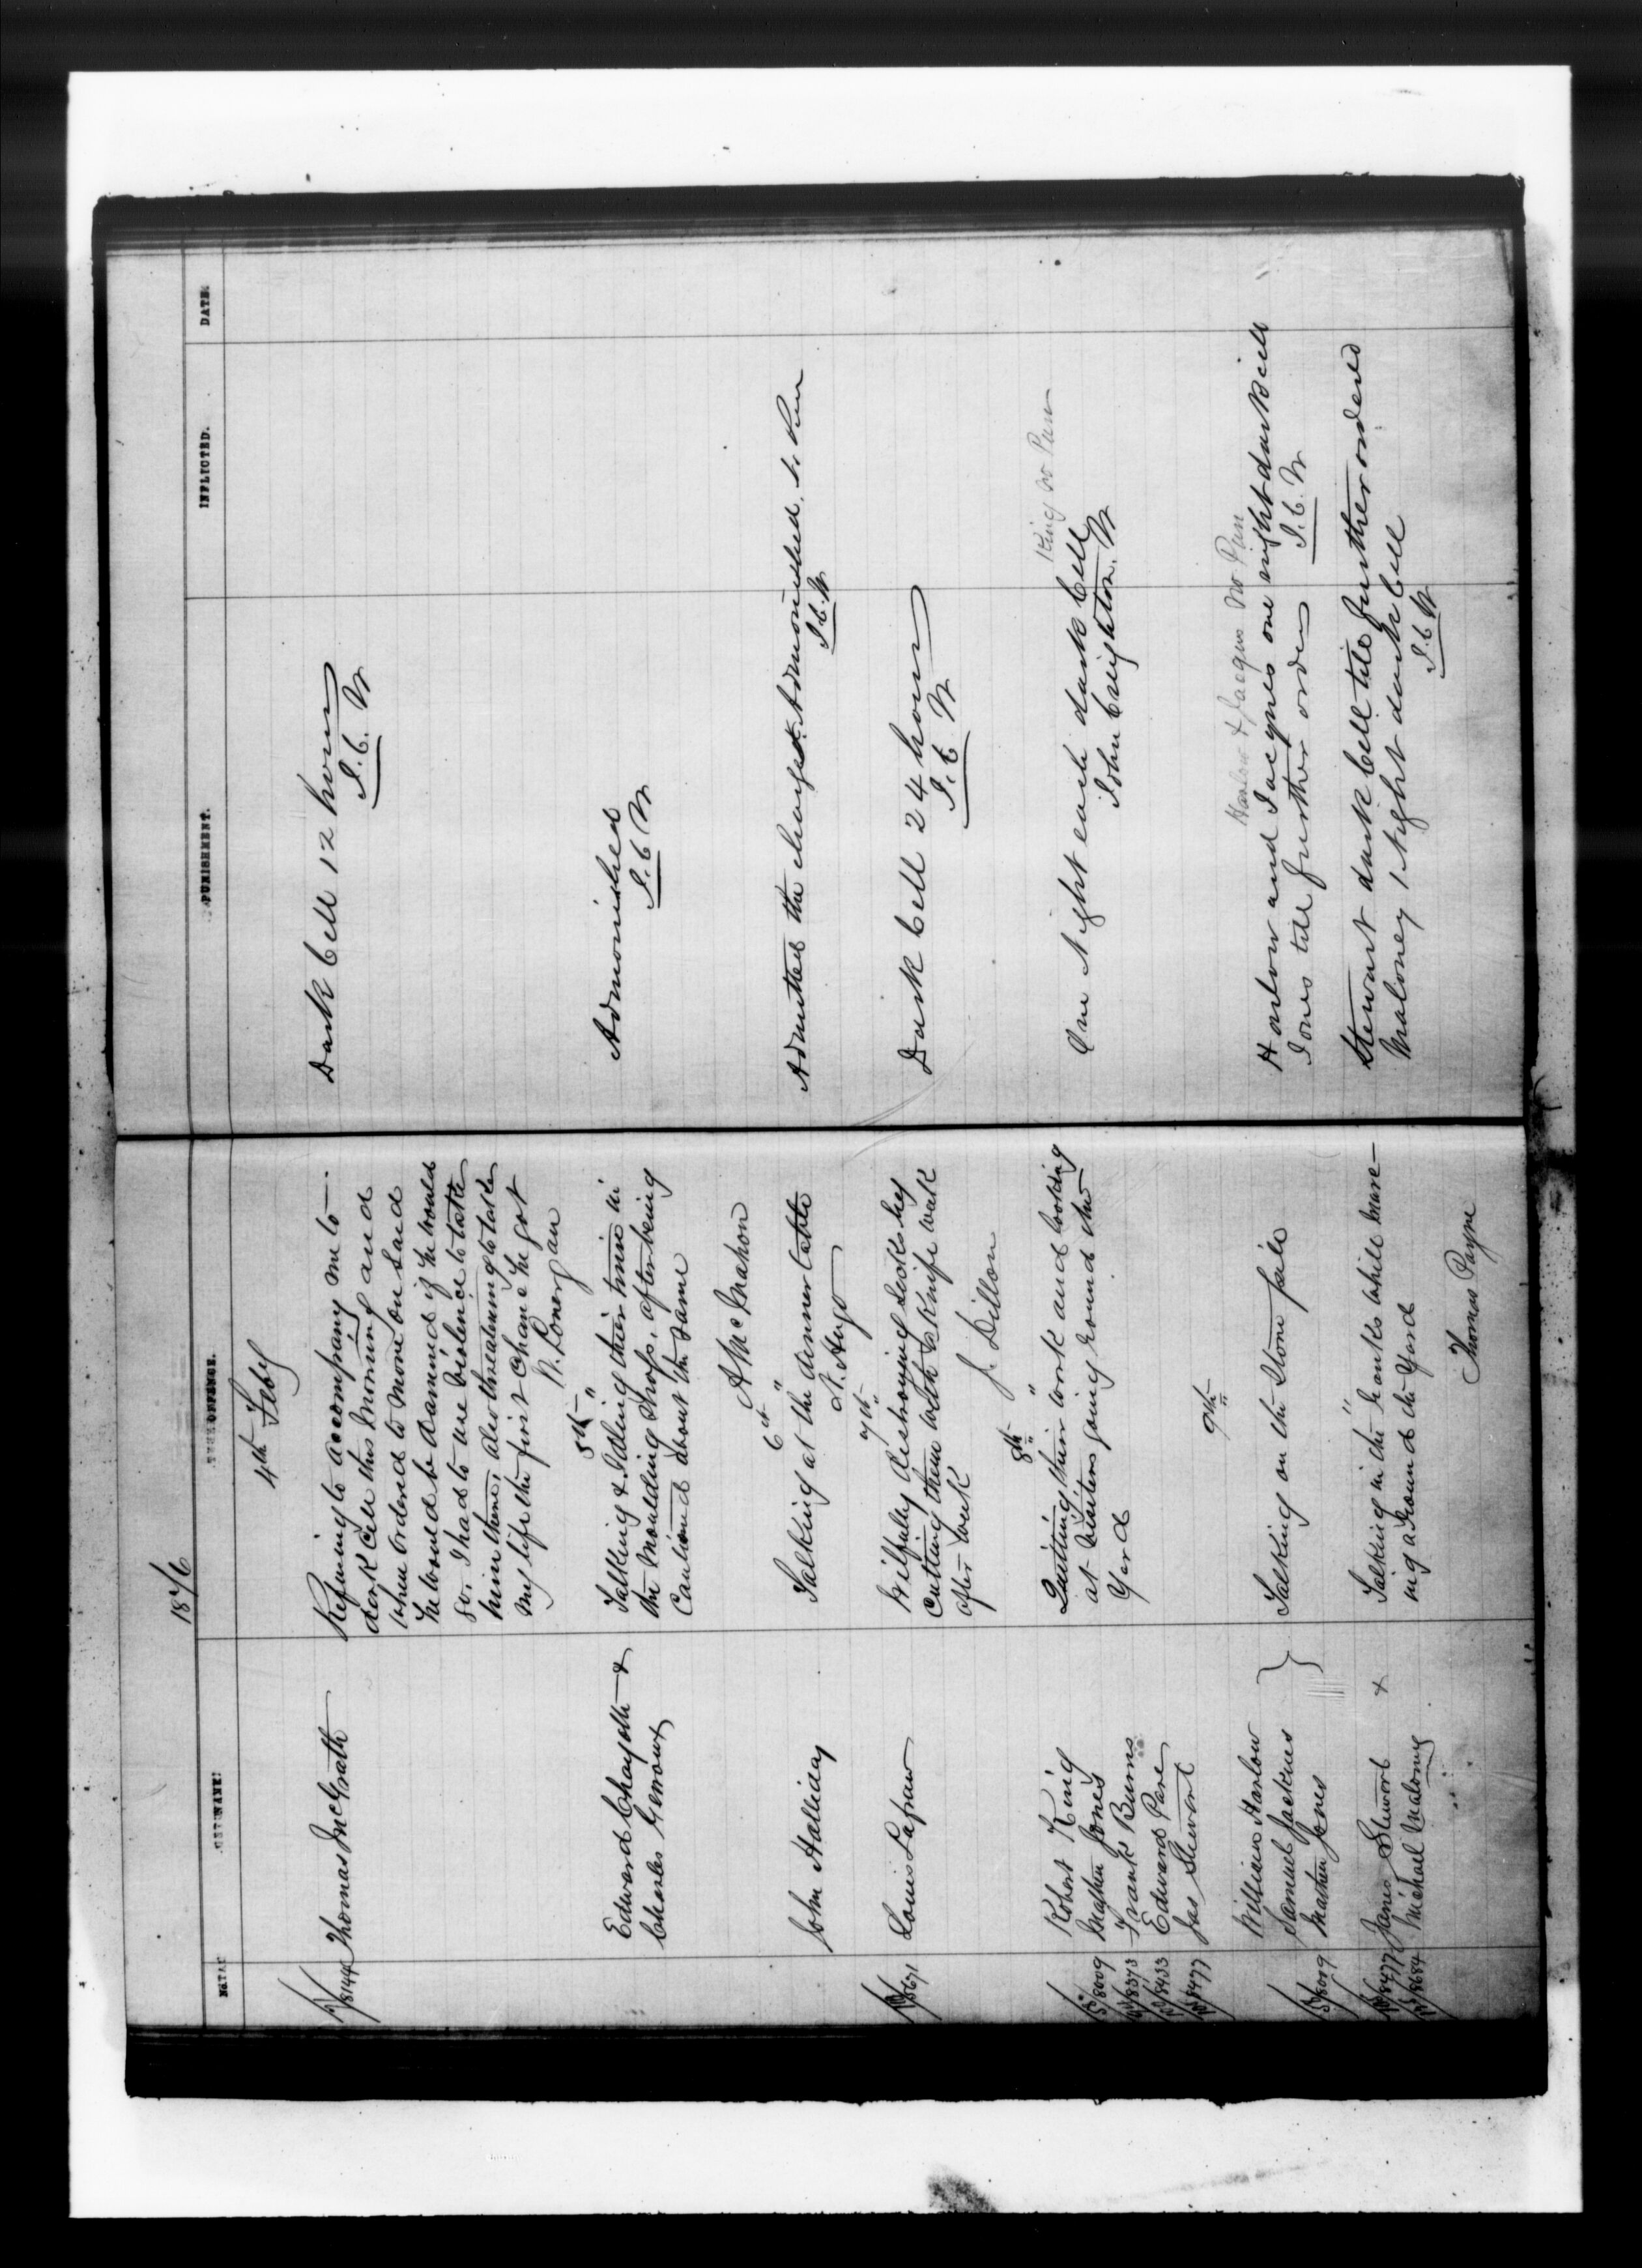 1876
NAME.
OFFENCE.
PUNISHMENT.
INFLICTED.
DATE.
4th Feby
8144 Thomas McGrath
Refusing to accompany me to
dark Cell this morning and
when ordered to move on said
he would be damned if he would
so. I had to use violence to take
him there, also threatening to take
my life the first chance he got
Lonergan
Dark Cell 12 hours
J. C. W
5th "
Edward Chayotte &
Charles Geroux
Talking & Idling their time in
the Moulding Shops, after being
Cautioned about the same
A McMahon
Admonished
J. C. W
6th "
John Halliday
Talking at the dinner table
Hugo
Admitted the charge & Admonished.
J. C. W
7th "
8671 Louis Lafraw
Wilfully destroying Socks by
Cutting them with a Knife week
after week
J. Dillon
Dark Cell 24 hours
J. C. W
8th "
Robert King
8009 Mathew Jones
8373 Frank Burns
8433 Edward Pare
8477 Jas Stewart
Quitting their work and looking
at Visitors going round the
Yard
King no Pun
One Night each dark Cell
John Creighton. W
9th "
William Harlow
Samuel Jackins
8009 Mathew Jones
Talking on the Stone pile
Harlow & Jacques no Pun
Harlow and Jacques one night dark Cell
Jones till further orders
J. C. W
"
8477 James Stewart &
8684 Michael Malony
Talking in the ranks while march-
ing around the Yard
Thomas Payne
Stewart dark Cell till further ordered
Maloney 1 Night dark Cell
J. C. W